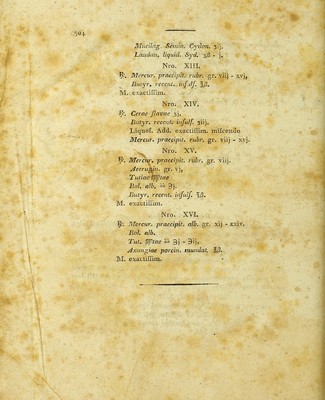 504
Mucilag. Semin. Cydon. ʒij.
Laudan. liquid. Syd. ʒß - j.
Nro. XIII.
℞. Mercur. praecipit. rubr. gr. viij - xvj.
Butyr. recent. insulf. ℥ß.
M. exactissim.
Nro. XIV.
℞. Cerae flavae ʒj.
Butyr. recent. insulf. ʒiij.
Liquef. Add. exactissim. miscendo
Mercur. praecipit. rubr. gr. viij - xvj.
Nro. XV.
℞. Mercur. praecipit. rubr. gr. viij.
Aerugin. gr. vj.
Tutiae pptae
Bol. alb. āā ℈j.
Butyr. recent. insulf. ℥ß.
M. exactissim.
Nro. XVI.
℞. Mercur. praecipit. alb. gr. xij - xxiv.
Bol. alb.
Tut. pptae āā ℈j - ℈ij.
Axungiae porcin. mundat. ℥ß.
M. exactissim.